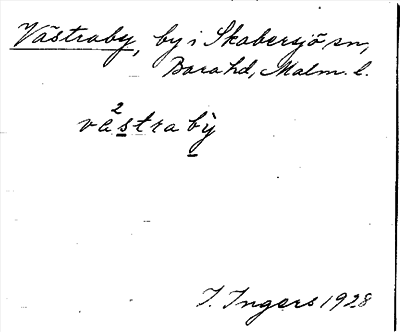 Västraby, by i Skabersjö sn,
Bara hd, Malm. l.
vä²straby̆
I. Ingers 1928